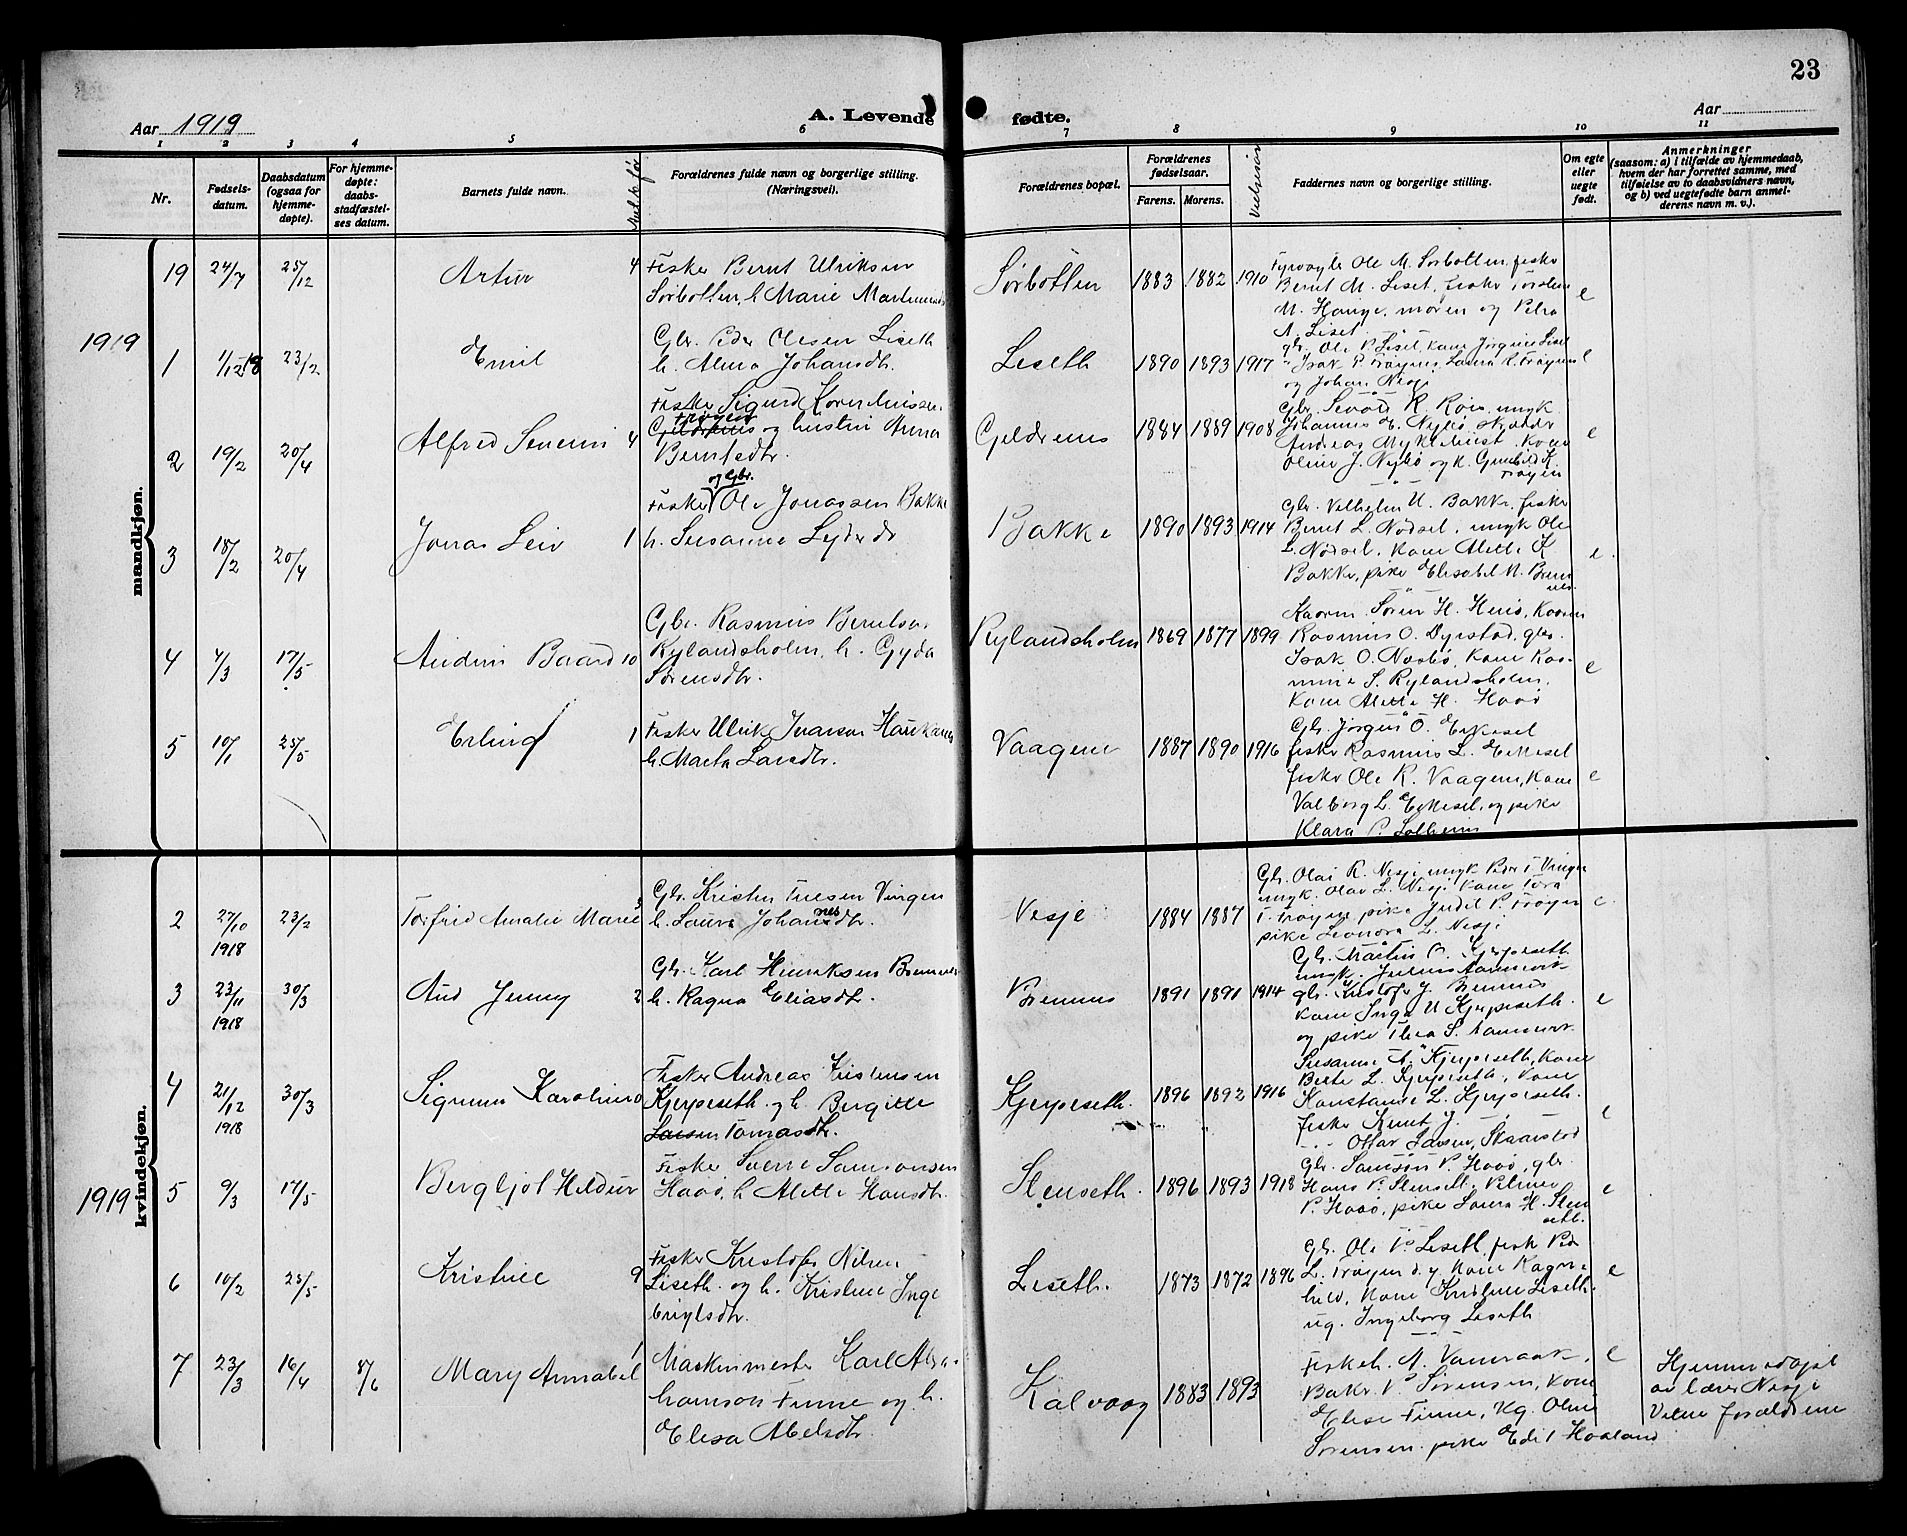 23
Aar 1919
A. Levende fødte.
Aar
1 2 3 4 5 6 7 8 9 10 11
Nr.
Fødsels-
datum.
Daabsdatum
(ogsaa for
hjemme-
døpte).
For hjemme-
døpte:
daabs-
stadfæstel-
ses datum.
Barnets fulde navn.
Forældrenes fulde navn og borgerlige stilling.
(Næringsvei).
Forældrenes bopæl.
Forældrenes
fødselsaar.
Farens. Morens.
Vielsesaar
Faddernes navn og borgerlige stilling.
Om egte
eller
uegte
født.
Anmerkninger
(saasom: a) i tilfælde av hjemmedaab,
hvem der har forrettet samme, med
tilføielse av to daabsvidners navn,
og b) ved uegtefødte barn anmel-
derens navn m. v.).
mandkjøn.
19 24/7 25/12 Artur 4
Fisker Bernt Ulriksen
Sørbotten, h. Marie
Sørbotten 1883 1882 1910
Ole M. Sørbotten, fisker
Bernt M. Liset, fisker
M. Hauge, moren og Petra
A. Liset
e
1919
1 1/12 18 23/2 Emil
Gbr. Peder Olesen Liseth
h. Alma Johansdtr.
Liseth 1890 1893 1917
gbr. Ole P. Liset, kone Jørgine Liset
Isak P. Frøyen, Laura R. Frøyen
og Johan Nesje
e
2 19/2 20/4 Alfred Severin 4
Fisker Sigurd
Frøyen
og hustru Anna
Berntsdtr.
Geldrenes 1884 1889 1908
Johannes E. Nybø
Andreas Myklebust, kone
Oline J. Nybø og k. Gunhild K.
Frøyen
e
3 18/2 20/4 Jonas Leiv 1
og Gbr.
Fisker Ole Jonassen Bakke
h. Susanne
Bakke 1890 1893 1914
Gbr. Vilhelm U. Bakke, fisker
Bernt L. Nødset, ungk Ole
L. Nødset, kone Alette K.
Bakke, pike Elisabet N. Brem
nes
e.
4 4/3 17/5 Andreas Baard 10
Gbr. Rasmus Berntsen
Rylandsholm, h. Gyda
Sørensdtr.
Rylandsholm 1869 1877 1899
Søren H.
Rasmus O. Dyrstad, gbr.
Isak O. Nesbø, kone Ras-
mine S. Rylandsholm,
kone Alette H. Haaø
e
5 10/1 25/5 Erling 1
Fisker Ulrik Ivarson
h. Marta Larsdtr.
Vaagene 1887 1890 1916
Gbr. Jørgen O.
fisker Rasmus L.
fisker Ole R. Vaagene, kone
Valborg L. og pike
Klara P. Solheim
e
kvindekjøn.
2 27/10 1918 23/2 Torfrid Amalie Marie 3
Gbr. Kristen Vingen
h. Laura Johannesdtr.
Nesje 1884 1887
Gbr. Olai R. Nesje ungk Peder T. Vingen
ungk. Olav L. Nesje kone Tora
T. Frøyen, pike Judit P. Frøyen
pike Leonora L. Nesje
e.
3 23/11 1918 30/3 Aud Jenny 2
Gbr. Karl Henriksen Bremnes
h. Ragna Eliasdtr.
Bremnes 1891 1891 1914
Gbr. Martin O. Kjerpeseth
ungk. Julius
gbr. Kristofer J. Bremnes
kone Inga U Kjerpeseth.
og pike Thea S.
e
4 21/12 1918 30/3 Sigrunn Karoline
Fisker Andreas Kristensen
Kjerpeseth og h. Bergitte
Larsen Tomasdtr.
Kjerpeseth. 1896 1892 1916
Susanne A. Kjerpeseth, kone
Berte L. Kjerpeseth, kone
Konstanse L. Kjerpeseth.
fisker Knut J.
Ottar Larsen, Skaarstad
e
1919
5 9/3 17/5 Bergljot Heldur
Fisker Sverre Samsonsen
Haaø, h Alette Hansdtr.
Stenseth. 1896 1893 1918
Gbr. Samson P. Haaø, gbr.
Hans P. Stenseth
P. Haaø, pike Laura H. Sten
seth.
e
6 10/2 25/5 Kristine 9
Fisker Kristofer Nilsen
Liseth og h. Kristine Inge
brigtsdtr.
Liseth. 1873 1872 1896
Gbr. Ole P. Liseth, fisk Peder
L. Frøyen d. y kone Ragn-
hild, kone Kristine Liseth.
ug. Ingeborg Liseth
e
7 23/3 16/4 8/6 Mary Annabel 1
Maskinmester Karl Abra-
hamson Finne og h.
Elesa Abelsdtr.
Kalvaag 1883 1893
Fiskeh. A. Vaneraak,
Baker P. Sørensen, kone
Elise Finne, kg. Oline
Sørensen. pike Edit Haaland
e
Hjemmedøpt
av lærer Nesje
Vitne forældrene